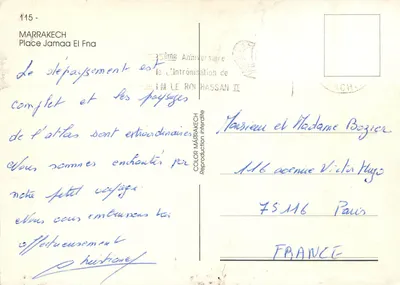 115 -
MARRAKECH
Place Jamaa El Fna
Le dépaysement est
complet et les paysages
de l'atlas sont extraordinaires
Nous sommes enchantés par
notre petit voyage.
Nous vous embrassons très
affectueusement
Anniversaire
de l'Intronisation de
S.M LE ROI HASSAN II
COLOR MARRAKECH
Reproduction interdite
Monsieur et Madame Bozier
116 avenue Victor Hugo
75116 Paris
FRANCE